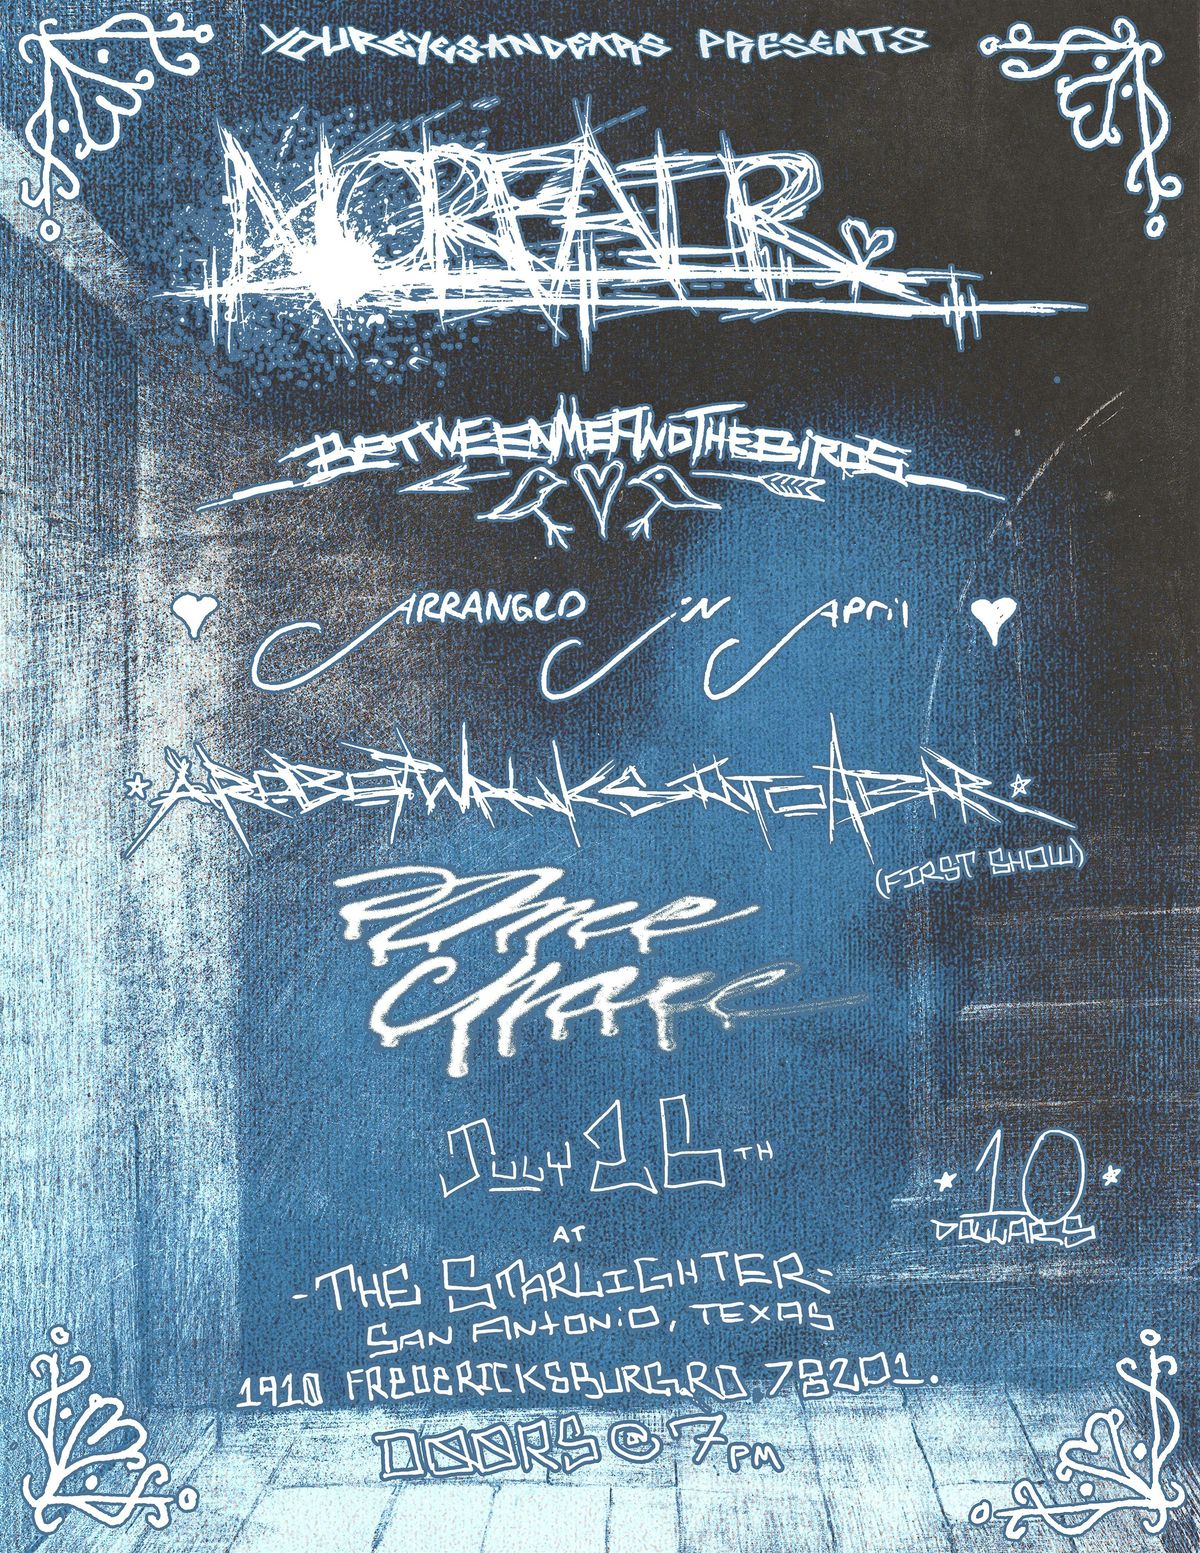 YOUREYESANDEARS PRESENTS
NORFAIR
BETWEENMEANDTHEBIRDS
ARRANGED iN APril
AROBOTWALKSINTOABAR
(FIRST SHOW)
Chare
JULY 26TH
10
DOLLARS
AT
-THE STARLIGHTER-
SAN ANTONiO, TEXAS
1910 FREDERICKSBURG.RD 78201.
DOORS @ 7PM